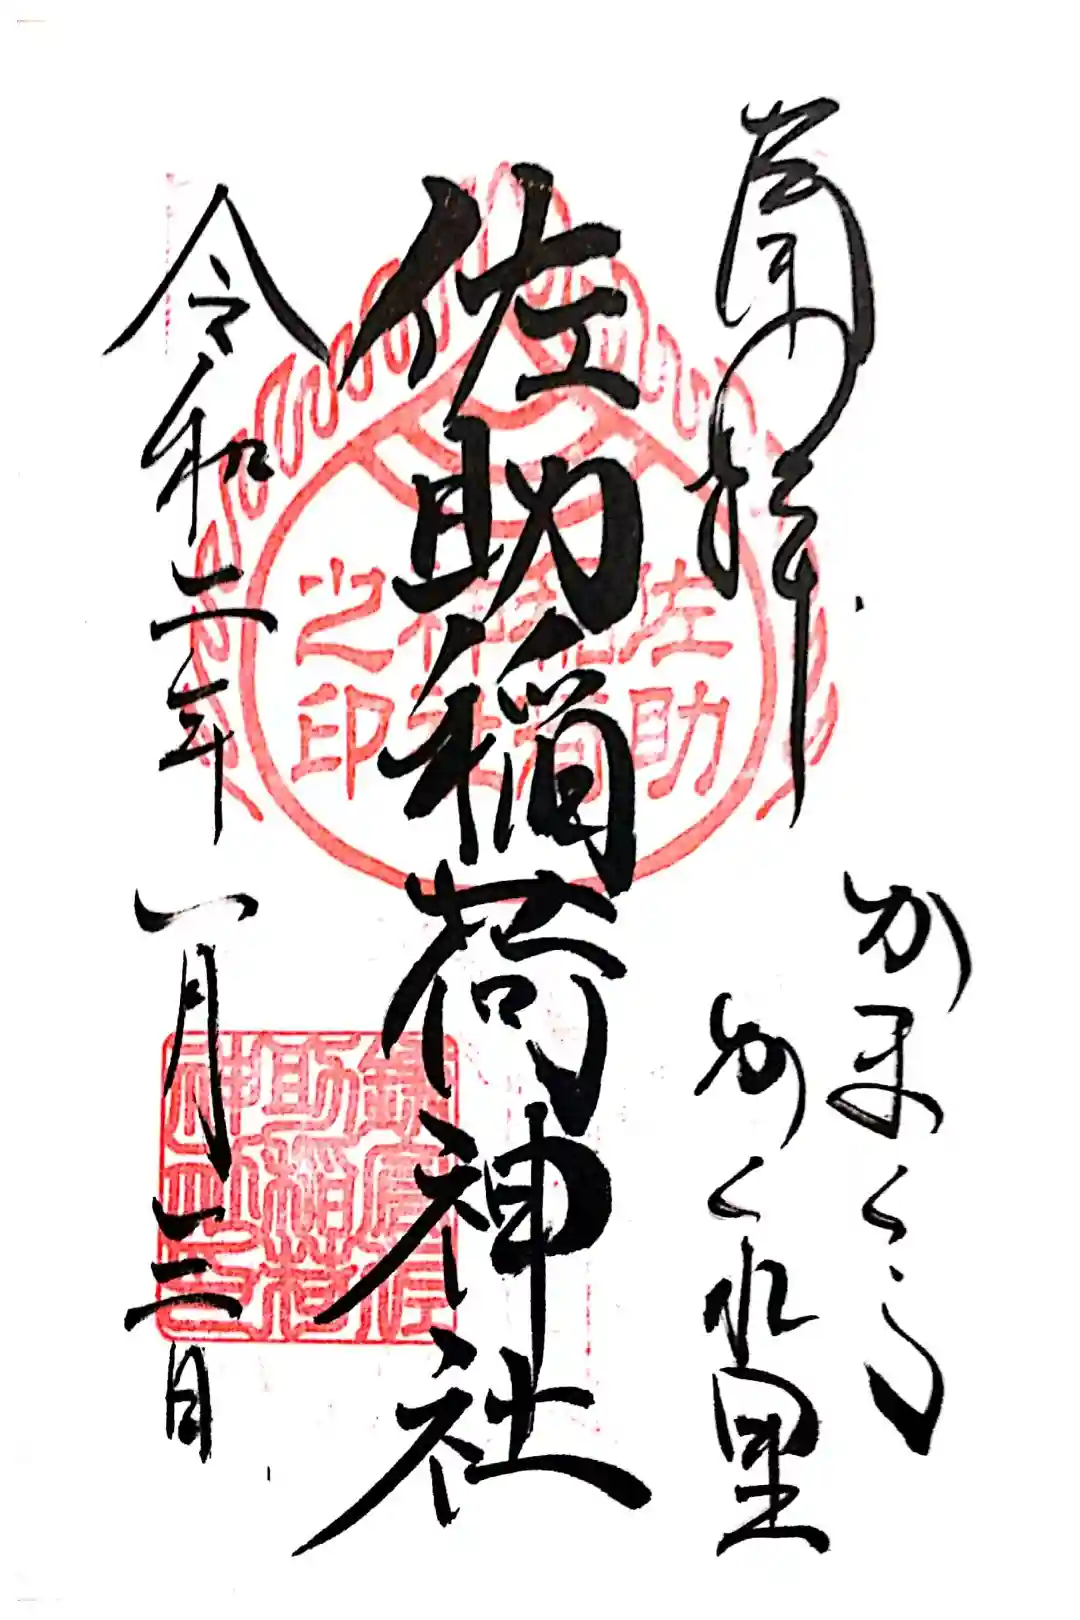 拝
かまくら
かくれ里
佐助稲荷神社
令和二年一月三日
佐助
稲荷
神社
之印
鎌倉佐
助稲荷
神社